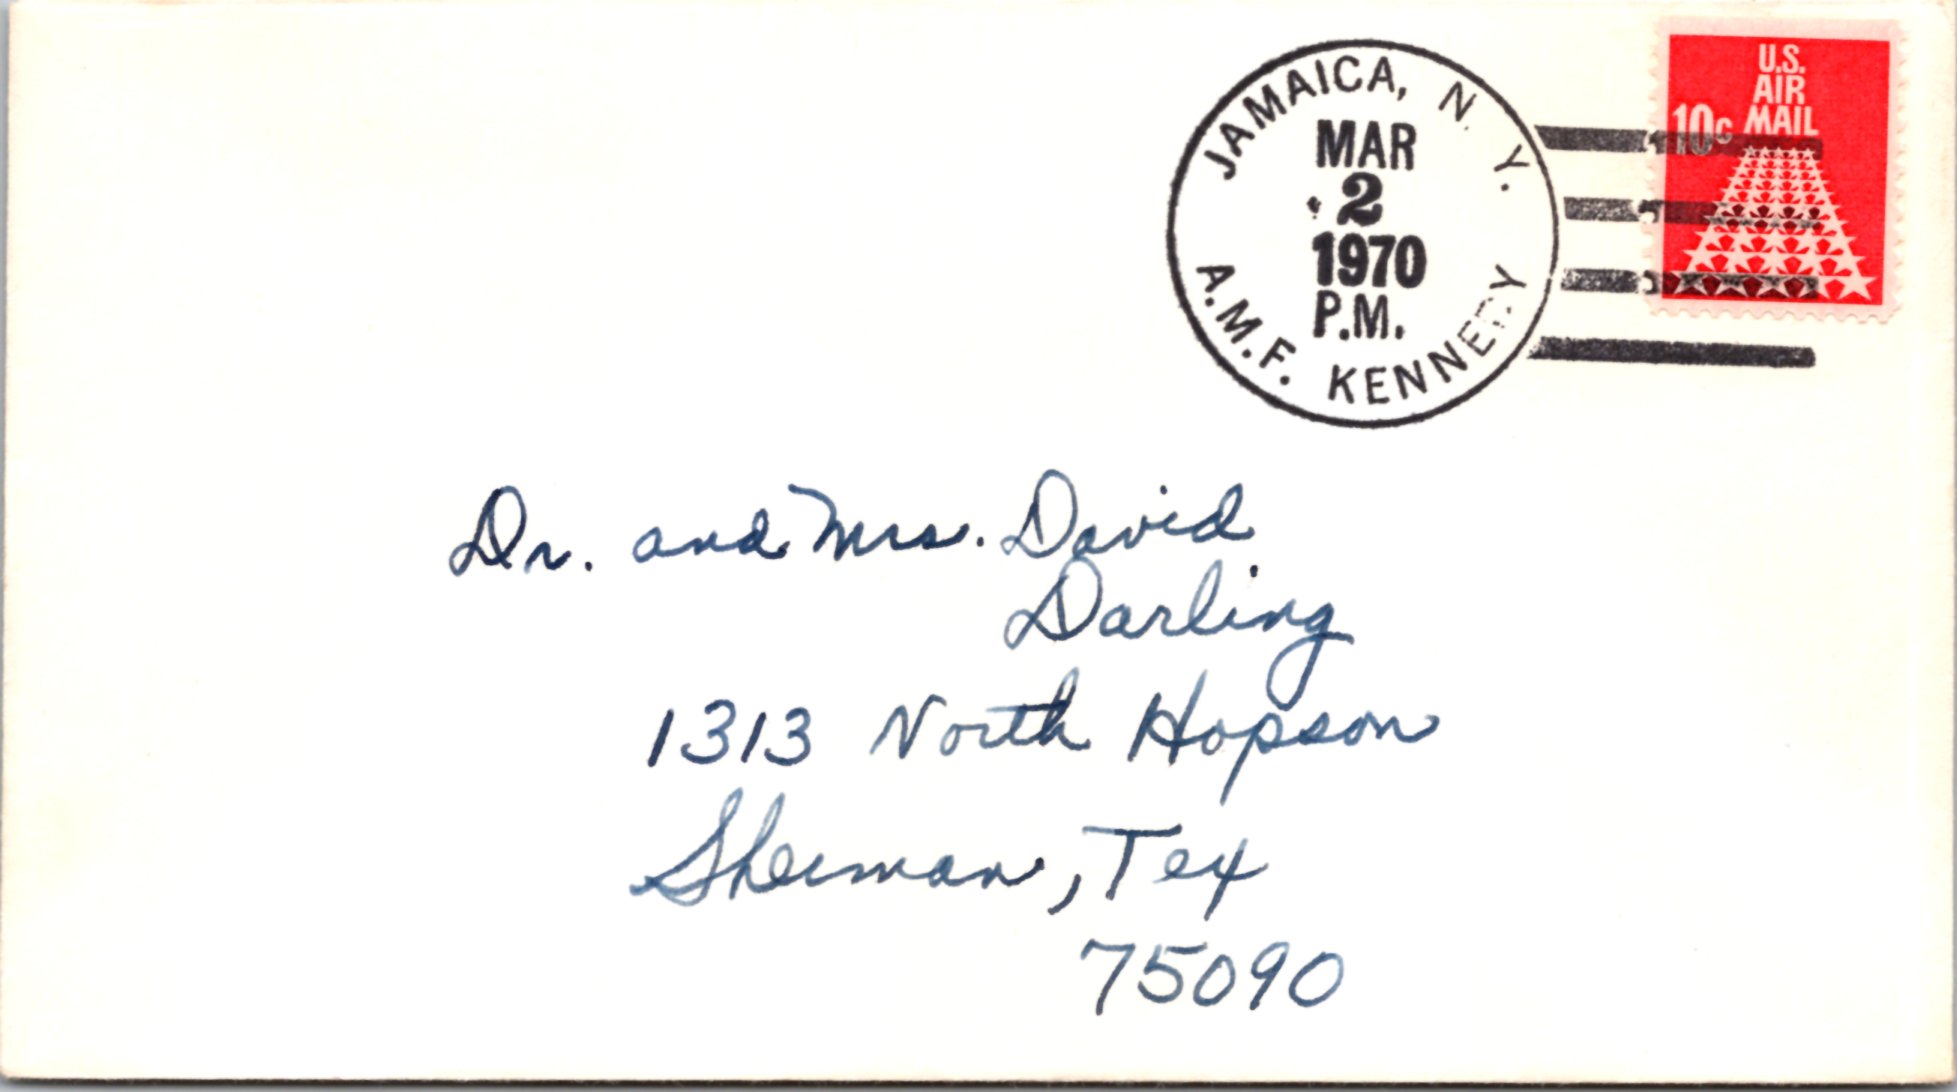 JAMAICA, N. Y.
MAR
2
1970
P.M.
A.M.F. KENNEDY
U.S.
AIR
MAIL
10c
Dr. and Mrs. David
Darling
1313 North Hopson
Sherman, Tex
75090